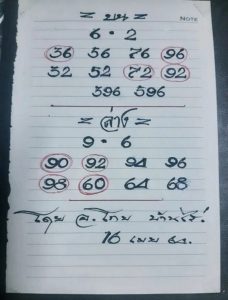 NOTE
= บน =
6 - 2
36 56 76 96
32 52 72 92
396 596
= ล่าง =
9 - 6
90 92 94 96
98 60 64 68
โดย อ.โทน บ้านไร่.
16 เมย 64.